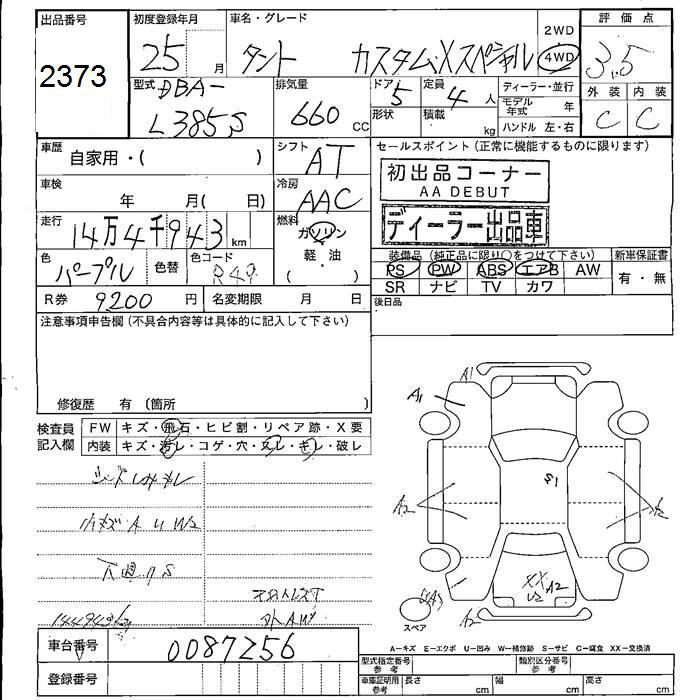 出品番号
2373
初度登録年月
25 月
車名・グレード
タント カスタムXスペシャル
2WD
4WD
評価点
3.5
外装 内装
C C
型式
DBA-
L385S
排気量
660 CC
ドア
5
形状
定員
4 人
積載 kg
ディーラー・並行
モデル年式 年
ハンドル 左・右
車歴
自家用・( )
シフト
AT
車検
年 月( 日)
冷房
AAC
走行
14万4千943 km
燃料
ガソリン
軽油
( )
色
パープル
色替
色コード
R券 9200 円
名変期限 月 日
セールスポイント (正常に機能するものに限ります)
初出品コーナー
AA DEBUT
ディーラー出品車
装備品 (純正品に限り○をつけて下さい)
PS PW ABS エアB AW
SR ナビ TV カワ
新車保証書
有・無
後日品
注意事項申告欄 (不具合内容等は具体的に記入して下さい)
修復歴 有 〔箇所 〕
検査員記入欄
FW キズ・飛石・ヒビ割・リペア跡・X要
内装 キズ・汚レ・コゲ・穴・スレ・キレ・破レ
小キズ A U W2
下回りS
144943km
A1
A1
A2
S1
A2
XX
U2
A2
A2
スペア
車台番号 0087256
登録番号
A-キズ E-エクボ U-凹み W-補修跡 S-サビ C-腐食 XX-交換済
型式指定番号 参考
類別区分番号 参考
車庫証明用 参考 長さ cm 幅 cm 高さ cm